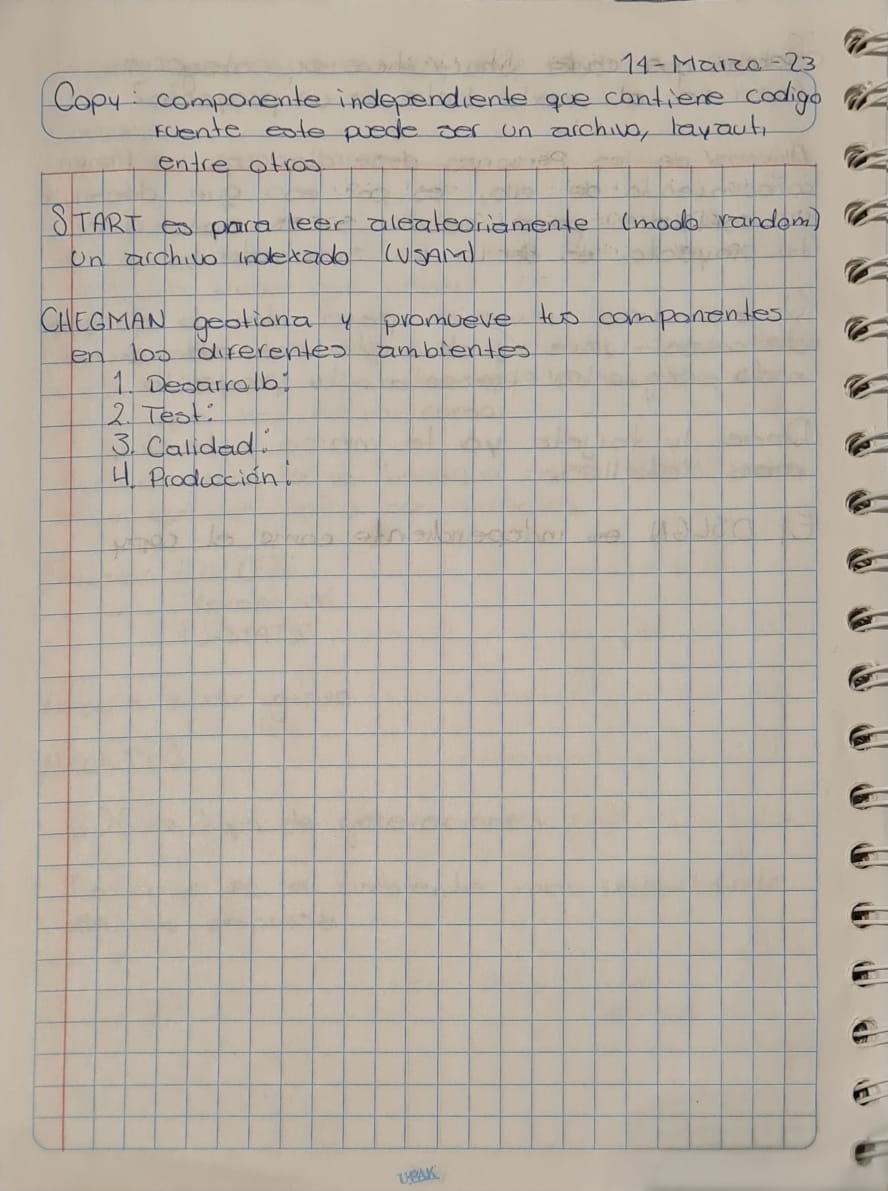 14-Marzo-23
Copy: componente independiente que contiene codigo
fuente este puede ser un archivo, layout,
entre otros
START es para leer aleateoriamente (modo random)
un archivo indexado (VSAM)
CHEGMAN gestiona y promueve tus componentes
en los diferentes ambientes
1. Desarrollo:
2. Test:
3. Calidad:
4. Producción: